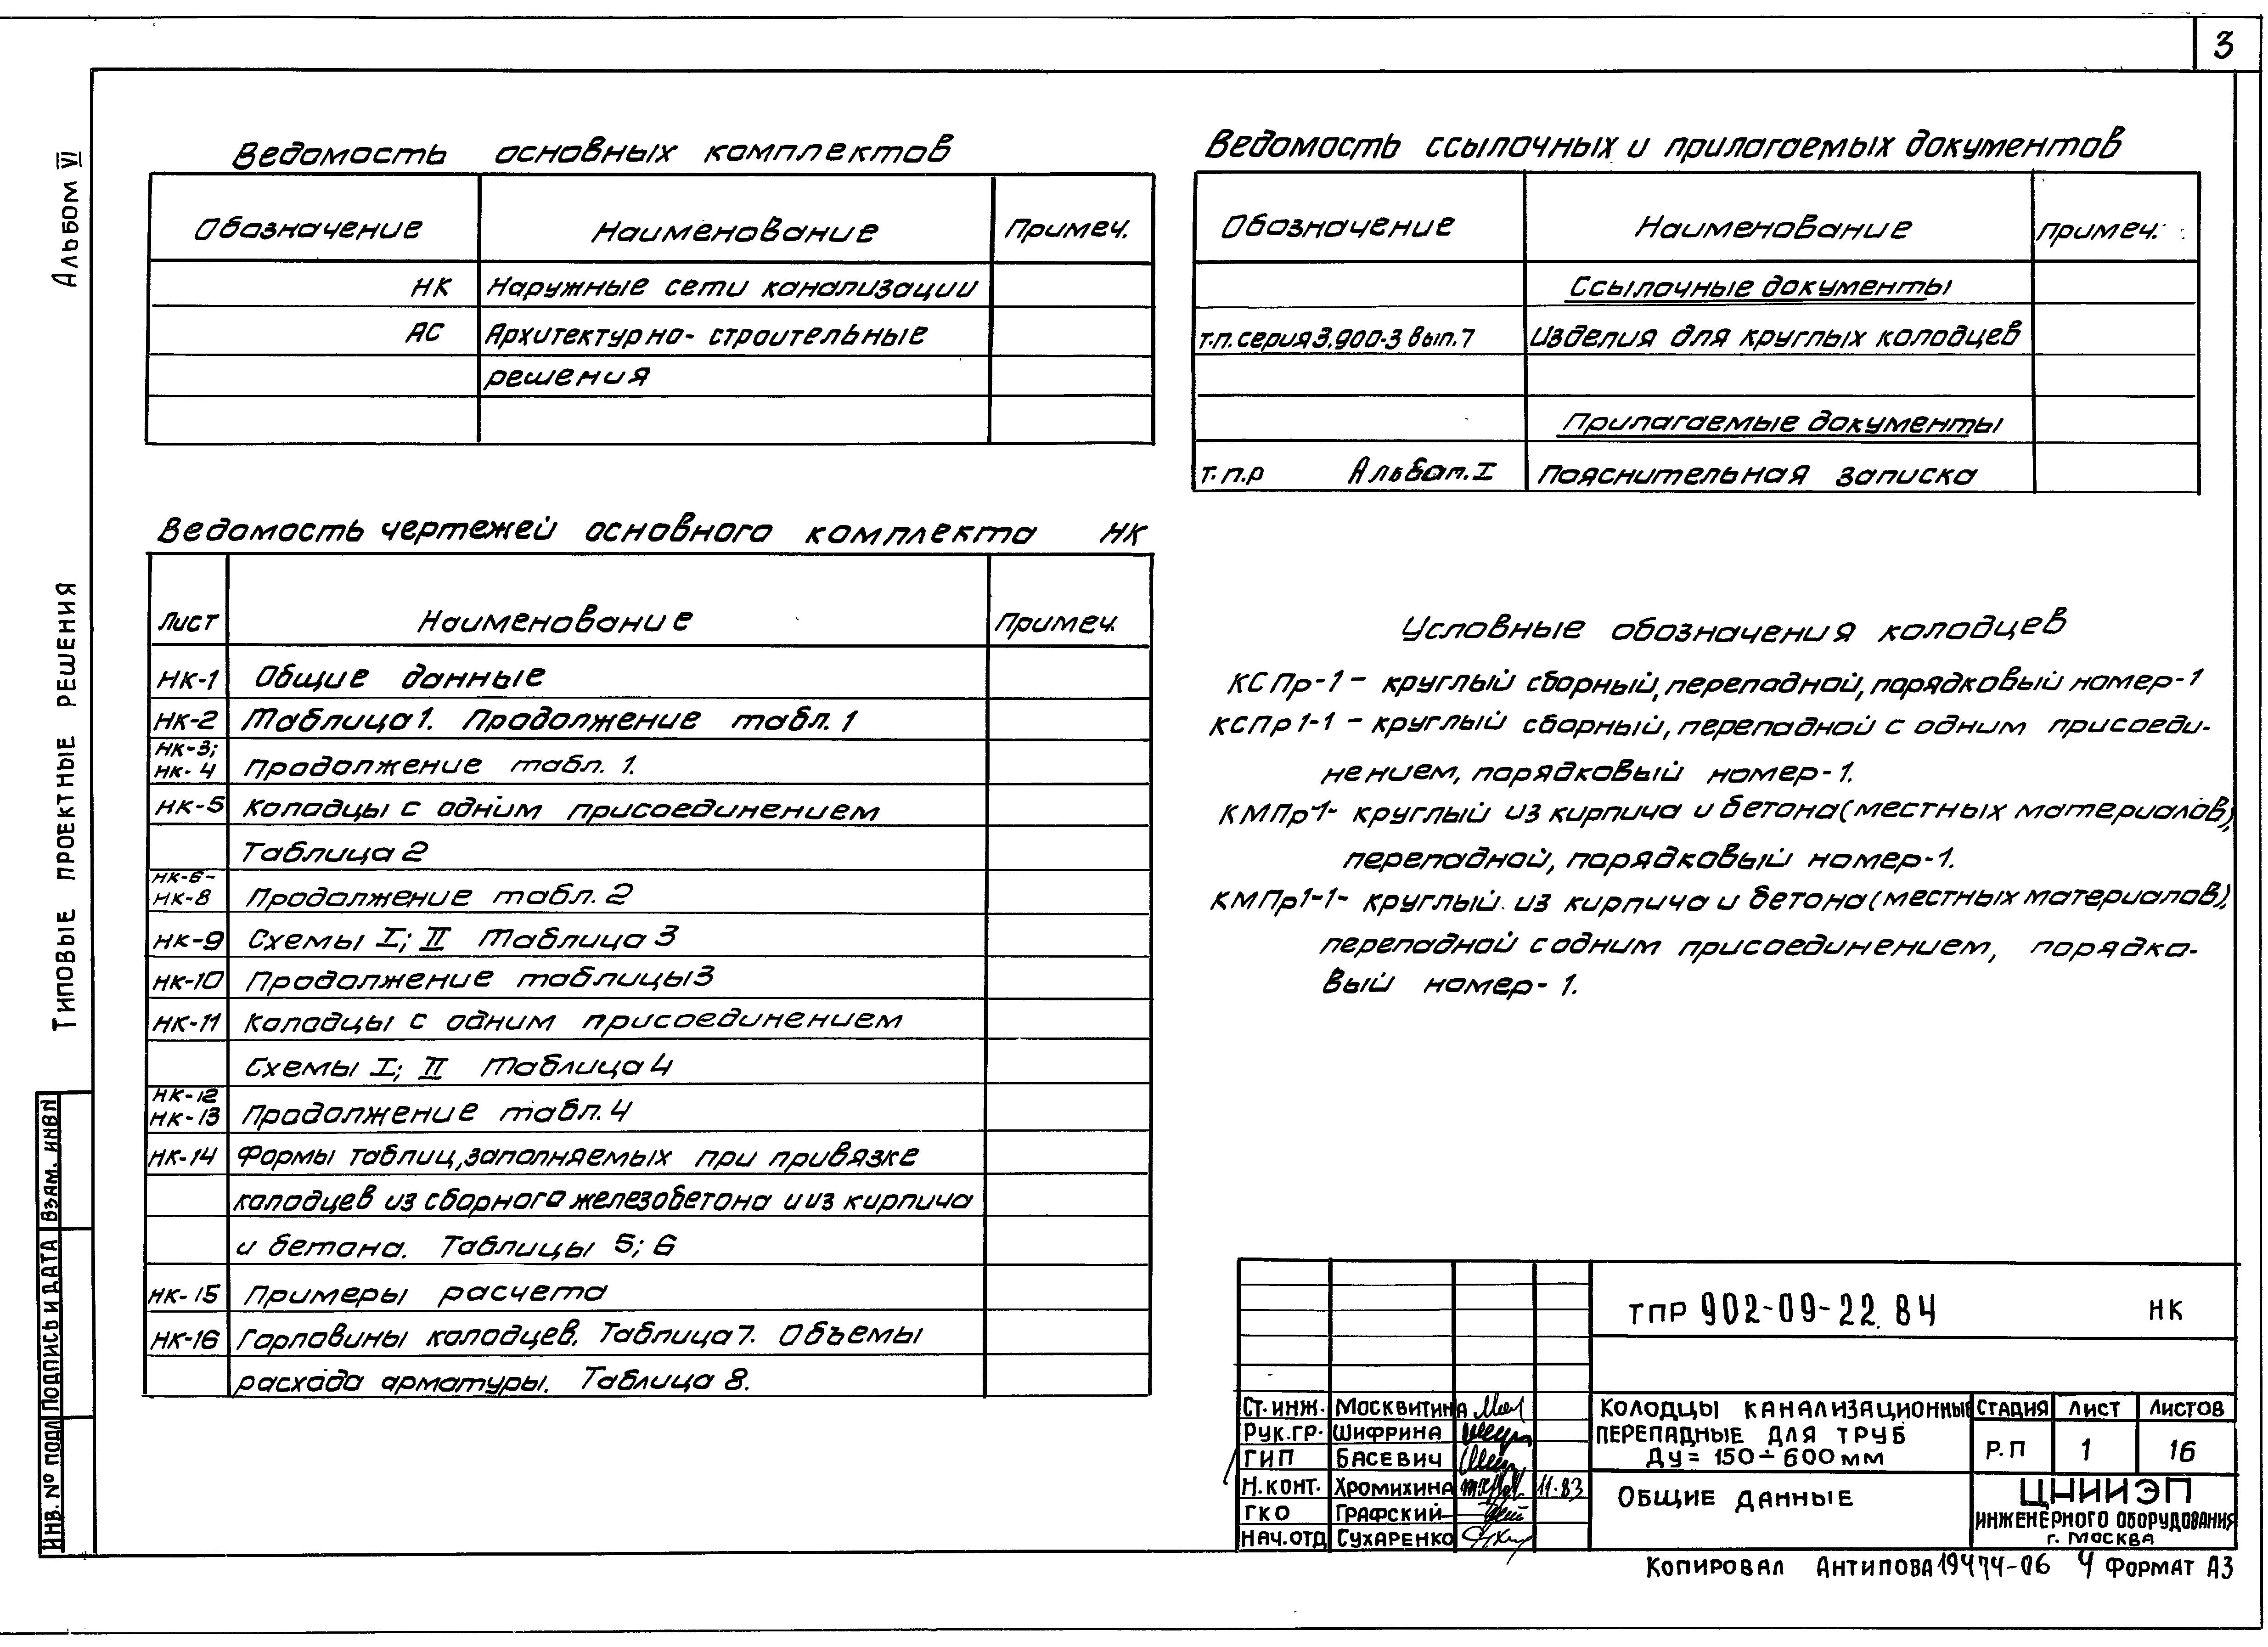 3
Альбом VI
Типовые проектные решения
Ведомость основных комплектов
Обозначение Наименование Примеч.
НК Наружные сети канализации
АС Архитектурно- строительные
решения
Ведомость чертежей основного комплекта НК
Лист Наименование Примеч.
НК-1 Общие данные
НК-2 Таблица 1. Продолжение табл. 1
НК-3;
НК-4 Продолжение табл. 1.
НК-5 Колодцы с одним присоединением
Таблица 2
НК-6-
НК-8 Продолжение табл. 2
НК-9 Схемы I; II Таблица 3
НК-10 Продолжение таблицы 3
НК-11 Колодцы с одним присоединением
Схемы I; II Таблица 4
НК-12
НК-13 Продолжение табл. 4
НК-14 Формы таблиц, заполняемых при привязке
колодцев из сборного железобетона и из кирпича
и бетона. Таблицы 5; 6
НК-15 Примеры расчета
НК-16 Горловины колодцев. Таблица 7. Объемы
расхода арматуры. Таблица 8.
Ведомость ссылочных и прилагаемых документов
Обозначение Наименование примеч.
Ссылочные документы
т.п. серия 3.900-3 вып. 7 Изделия для круглых колодцев
Прилагаемые документы
т.п.р Альбом I пояснительная записка
Условные обозначения колодцев
КСПр-1 - круглый сборный, перепадной, порядковый номер-1
КСПр1-1 - круглый сборный, перепадной с одним присоеди-
нением, порядковый номер-1.
КМПр-1- круглый из кирпича и бетона (местных материалов),
перепадной, порядковый номер-1.
КМПр1-1- круглый из кирпича и бетона (местных материалов),
перепадной с одним присоединением, порядко-
вый номер-1.
ТПР 902-09-22.84 НК
Ст. инж. Москвитина
Рук.гр. Шифрина
ГИП Басевич
Н.конт. Хромихина 11.83
ГКО Графский
Нач.отд Сухаренко
Колодцы канализационные
перепадные для труб
Ду = 150÷600 мм
Стадия Лист Листов
Р.П 1 16
Общие данные
ЦНИИЭП
инженерного оборудования
г. Москва
Копировал Антипова 19474-06 4 Формат А3
Взам. инв N
Подпись и дата
Инв. № подл